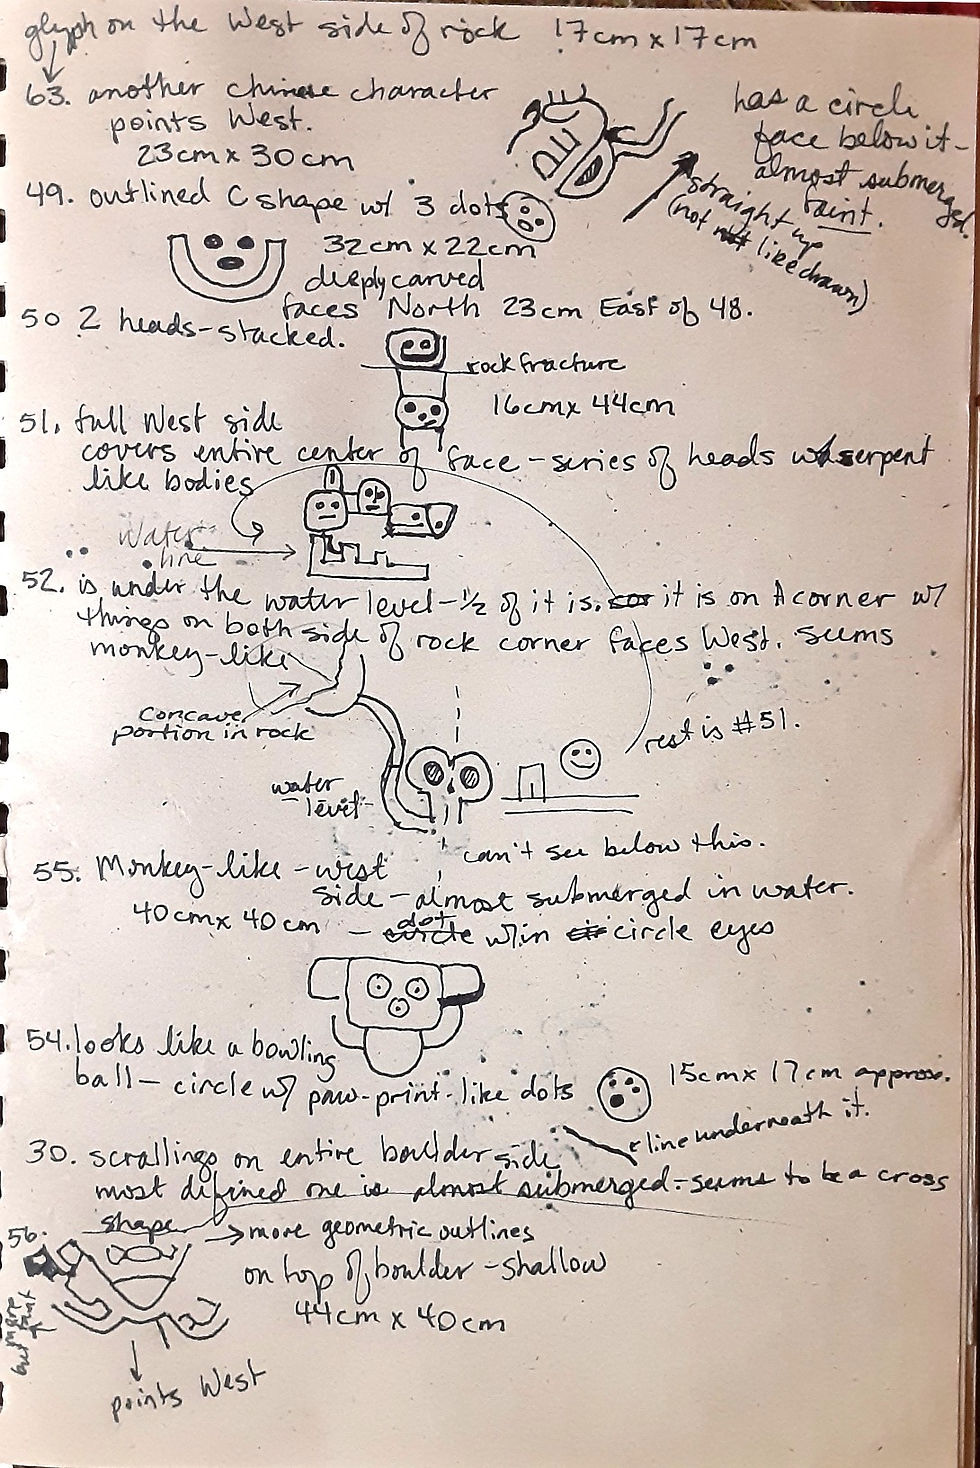 glyph on the West side of rock 17cm x 17cm
63. another chinese character
points West.
23cm x 30cm
has a circle
face below it-
almost submerged.
faint.
straight up
(not like drawn)
49. outlined C shape w/ 3 dots
32cm x 22cm
deeply carved
faces North 23cm East of 48.
50 2 heads-stacked.
rock fracture
16cm x 44cm
51. full West side
covers entire center of face - series of heads w/ serpent
like bodies
Water
line
52. is under the water level - 1/2 of it is. it is on A corner w/
things on both side of rock corner faces West. seems
monkey-like
concave
portion in rock
rest is #51.
water
level
can't see below this.
55. Monkey-like - west
side - almost submerged in water.
40cm x 40cm - dot w/in circle eyes
54. looks like a bowling
ball - circle w/ paw-print-like dots 15cm x 17cm approx.
line underneath it.
30. scrallings on entire boulder side
most defined one is almost submerged - seems to be a cross
shape
56. → more geometric outlines
on top of boulder - shallow
44cm x 40cm
more
but faint
points West